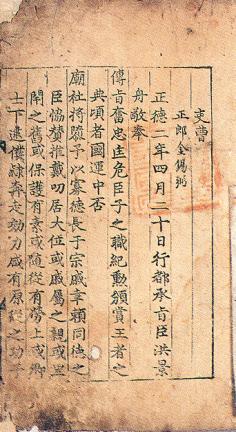 吏曹
正郎金錫弼
正德二年四月二十日行都承旨臣洪景
舟敬奉
傳旨奮忠匡危臣子之職紀勳頒賞王者之
典頃者國運中否
廟社將隳予以寡德長于宗戚幸賴同德之
臣協贊推戴叨居大位或戚屬之親或里
閈之舊或保護有素或隨從有勞上或卿
士下逮僕隷奔走効力咸有原從之功予